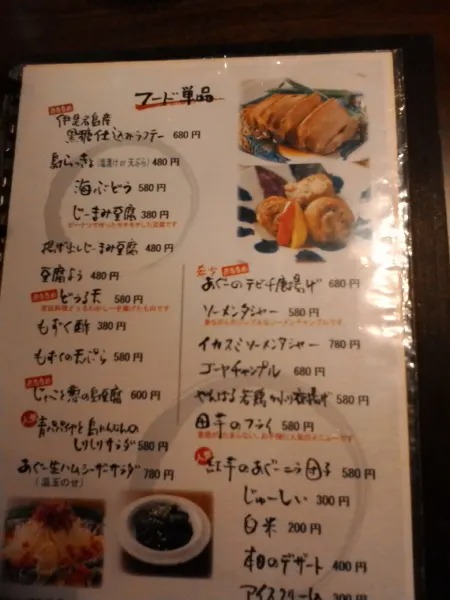 フード単品
おすすめ
伊是名島産
黒糖仕込みラフテー 680円
島らっきょ(塩漬けor天ぷら) 480円
海ぶどう 580円
じーまみ豆腐 380円
ピーナツで作ったモチモチした豆腐です
揚げ出しじーまみ豆腐 480円
豆腐よう 480円
おすすめ
どぅる天 580円
もずく酢 380円
もずくの天ぷら 580円
おすすめ
じゃこと葱の島豆腐 600円
人気
青パパイヤと島にんじんの
しりしりサラダ 580円
あぐー生ハムシーザーサラダ 780円
(温玉のせ)
おすすめ
あぐーのテビチ唐揚げ 680円
ソーメンタシヤー 580円
イカスミソーメンタシヤー 780円
ゴーヤチャンプル 680円
やんばる若鶏 580円
田芋のフライ 580円
人気
紅芋のあぐーころ団子 580円
じゅーしぃ 300円
白米 200円
本日のデザート 400円
アイスクリーム 300円